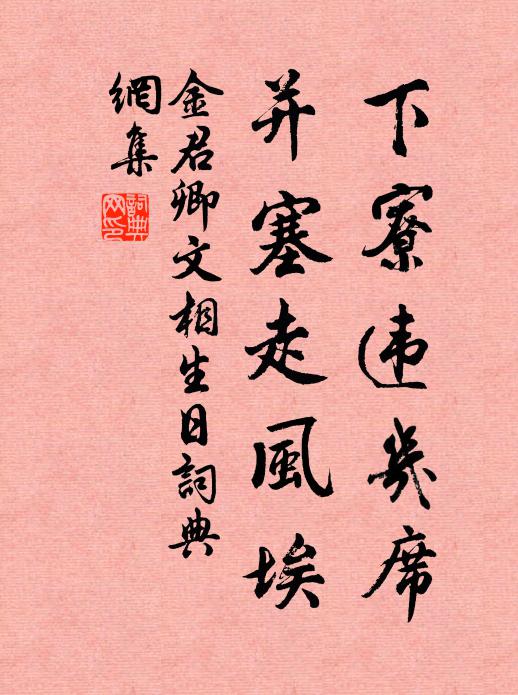 下寮违幾席
并塞走風埃
金君卿文相生日詞典
網集
詞典網印